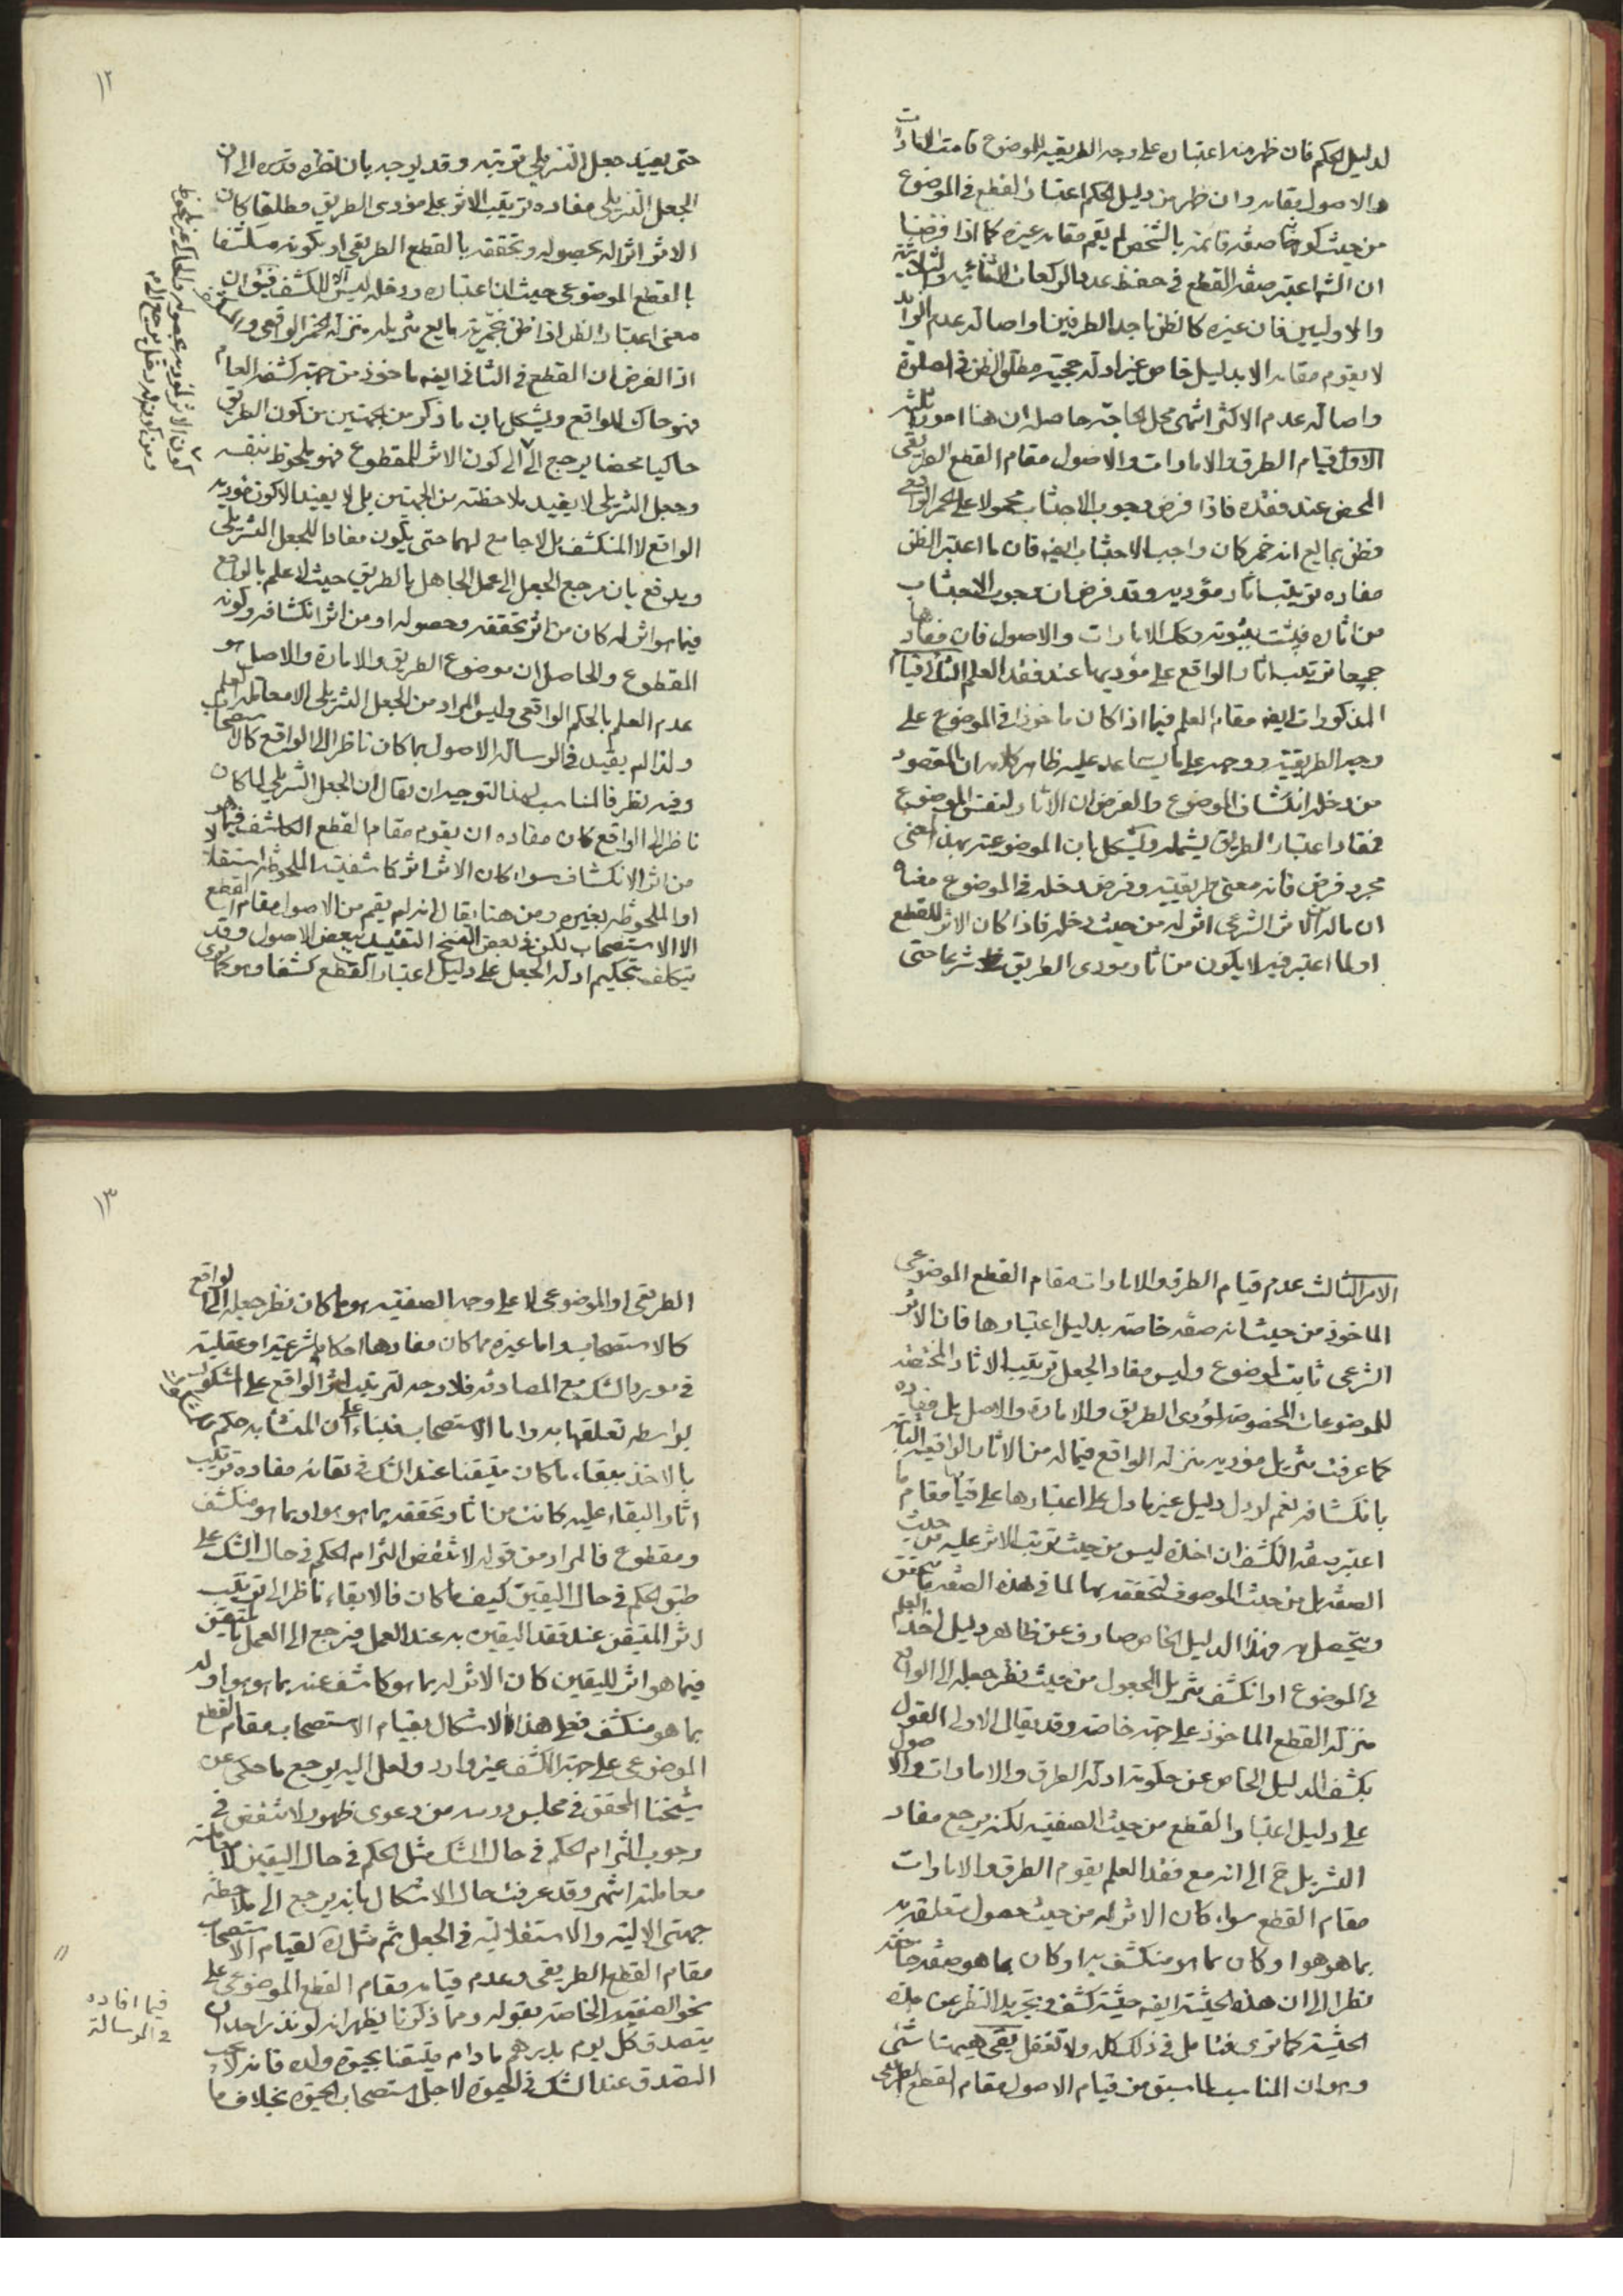 لدليل الحكم فان ظهر منه اعتباره على وجه الطريقيه للموضوع قامت الامارات
والاصول مقامه وان ظهر من دليل الحكم اعتبار القطع فى الموضوع
من حيث كونها صفه قائمه بالشخص لم يقم مقامه غيره كما اذا فرضنا
ان الش اعتبر صفه القطع فى حفظ عدد الركعات الثنائيه والثلاثية
والاوليين فان غيره كالظن باحد الطرفين او اصاله عدم الزايد
لا يقوم مقامه الا بدليل خاص غير ادله حجيته مطلق الظن فى الصلوة
واصاله عدم الاكثر انتهى محل الحاجة حاصله ان هنا امور ثلثه
الاول قيام الطرق والامارات والاصول مقام القطع الطريقى
المحض عند فقده فاذا فرض وجوب الاجتناب محمولا على الخمر الواقعى
فظن بمايع انه خمر كان واجب الاجتناب ايضه فان ما اعتبر الظن
مفاده ترتيب اثار مؤديه وقد فرض ان وجوب الاجتناب
من اثاره فيثبت بثبوته وكك الامارات والاصول فان مفادها
جميعا ترتيب اثار الواقع على مؤديها عند فقد العلم الثانى قيام
المذكورات ايضه مقام العلم فيما اذا كان ماخوذا فى الموضوع على
وجه الطريقيته ووجهه على ما يساعد عليه ظاهر كلامه ان المقصود
من دخله انكشاف الموضوع والغرض ان الاثار لنفس الموضوع
فمفاد اعتبار الطريق يشمله ويشكل بان الموضوعيته بهذا المعنى
مجرد فرض فانه معنى طريقيته وفرض دخله فى الموضوع معناه
ان ماله الاثر الشرعى اثر له من حيث دخله فاذا كان الاثر للقطع
او لما اعتبر فيه لا يكون من اثار مودى الطريق شرعا حتى
١٢
حتى يفيد جعل التنزيلى ترتبه وقد يوجه بان نظره قدسره الى ان
الجعل التنزيلى مفاده ترتيب الاثر على مؤدى الطريق مطلقا كان
الاثر اثرا له بحصوله وتحققه بالقطع الطريقى او بكونه منكشفا
بالقطع الموضوعى حيث ان اعتباره ودخله ليس الا للكشف فيؤل ان
معنى اعتبار الظن اذا ظن بخمريته مايع تنزيله منزله الخمر الواقعى والمنكشف
اذ الغرض ان القطع فى الثانى ايضه ماخوذ من جهته كشفه العام
فهو حاك للواقع ويشكل بان ما ذكر من الجهتين من كون الطريق
حاكيا محضا يرجع الى الى كون الاثر للمقطوع فهو ملحوظ بنفسه
وجعل التنزيلى لا يفيد ملاحظته من الجهتين بل لا يفيد الا كون مؤديه
الواقع لا المنكشف بل لا جامع لهما حتى يكون مفادا للجعل التنزيلى
ويدفع بان مرجع الجعل الى عمل الجاهل بالطريق حيث لا علم بالواقع
فيما هو اثر له كان من اثر تحققه وحصوله او من اثر انكشافه وكونه
المقطوع والحاصل ان موضوع الطريق والامارة والاصل هو
عدم العلم بالحكم الواقعى وليس المراد من الجعل التنزيلى الا معامله العلم
ولذا لم يقيد فى الرساله الاصول بما كان ناظرا الى الواقع كالاستصحاب
وفيه نظر فالمناسب لهذا التوجيه ان يقال ان الجعل التنزيلى لما كان
ناظرا الى الواقع كان مفاده ان يقوم مقام القطع الكاشف فيما هو
من اثر الانكشاف سواء كان الاثر اثر كاشفيته الملحوظه استقلالا
او الملحوظه بغيره ومن هنا يقال انه لم يقم من الاصول مقام القطع
الا الاستصحاب لكن فى بعض النسخ التقييد ببعض الاصول وقد
يتكلف بتحكيم ادله الجعل على دليل اعتبار القطع كشفا وهو كما ترى
الامر الثالث عدم قيام الطرق والامارات مقام القطع الموضوعى
الماخوذ من حيث انه صفه خاصه بدليل اعتبارها فان الاثر
الشرعى ثابت لموضوع وليس مفاد الجعل ترتيب الاثار المختصه
للموضوعات المخصوصه لمؤدى الطريق والامارة والاصل بل مفاده
كما عرفت تنزيل مؤديه منزله الواقع فيما له من الاثار الواقعيه الثابته
بانكشافه نعم لو دل دليل غير ما دل على اعتبارها على قيامها مقام ما
اعتبر صفه الكشف ان اخذه ليس من حيث ترتب الاثر عليه من حيث
الصفه بل من حيث الموصوف لتحققه بها لما فى هذه الصفه ما يتحقق
ويتحصل به فهذا الدليل الخاص صارف عن ظاهر دليل اخذ العلم
فى الموضوع او انكشف تنزيل المجعول من حيث نظر جعله الى الواقع
منزله القطع الماخوذ على جهته خاصه وقد يقال الاولى القول
بكشف الدليل الخاص عن حكومه ادله الطرق والامارات والاصول
على دليل اعتبار القطع من حيث الصفتيه لكنه يرجع مفاد
التنزيل ح الى انه مع فقد العلم يقوم الطرق والامارات
مقام القطع سواء كان الاثر له من حيث حصول متعلقه به
بما هو هو او كان بما هو منكشف به او كان بما هو صفه خاصه
نظرا الى ان هذه الحيثيته ايضه حيثيته كشف وتجريد النظر عن هذه
الحيثيته كما ترى فتامل فى ذلك كله ولا تغفل بقى هيهنا شئى
وهو ان المناسب لما سبق من قيام الاصول مقام القطع الطريقى
١٣
الطريقى او الموضوعى لا على وجه الصفتيه هو ما كان نظر جعله الى الواقع
كالاستصحاب واما غيره مما كان مفادها احكاما شرعيته او عقليته
فى مورد الشك مع المصادفه فلا وجه لترتيب اثر الواقع على المشكوك
بواسطه تعلقها به واما الاستصحاب فبناء على ان المنشأ به حكم
بالاخذ ببقاء ما كان متيقنا عند الشك فى بقائه مفاده ترتيب
اثار البقاء عليه كانت من اثار تحققه بما هو هو او بما هو منكشف
ومقطوع فالمراد من قوله لا تنقض التزام الحكم فى حال الشك على
طبق الحكم فى حال اليقين كيف ما كان فالابقاء ناظر الى ترتيب
اثر المتيقن عند فقد اليقين به عند العمل فيرجع الى العمل بالمتيقن
فيما هو اثر لليقين كان الاثر له بما هو كاشف عنه بما هو هو او له
بما هو منكشف فعلى هذا الاشكال بقيام الاستصحاب مقام القطع
الموضوعى على جهة الكشف غير وارد ولعل اليه يرجع ما حكى عن
شيخنا المحقق فى مجلس درسه من دعوى ظهور لا تنقض فى
وجوب التزام الحكم فى حال الشك مثل الحكم فى حال اليقين لا معاملته
معاملته انتهى وقد عرفت حال الاشكال بانه يرجع الى ملاحظة
جهتى الاليته والاستقلاليته فى الجعل ثم مثل لقيام الاستصحاب
مقام القطع الطريقى وعدم قيامه مقام القطع الموضوعى على
نحو الصفتيه الخاصه بقوله ومما ذكرنا يظهر انه لو نذر احد ان
يتصدق كل يوم بدرهم ما دام متيقنا بحيوة ولده فانه لا يجب
التصدق عند الشك فى الحيوة لاجل استصحاب الحيوة بخلاف ما
فيما افاده
فى الرسالة